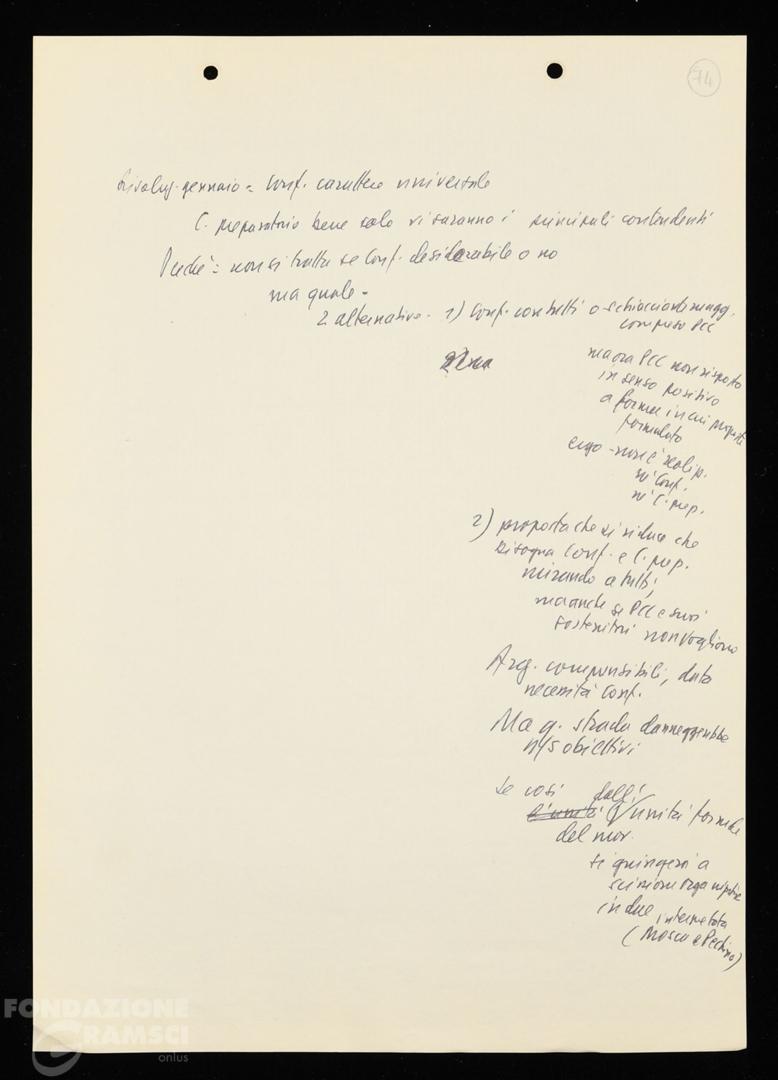 74
gennaio = Conf. carattere universale
C. preparatorio bene solo vi saranno i principali contendenti
Perché = non si tratta se Conf. desiderabile o no
ma quale =
2 alternative - 1) Conf. con tutti o schiacciante magg.
compreso PCC
ma ora PCC non risposto
in senso positivo
a forma in cui proposta
formulata
ergo - non c'è
né Conf.
né C. prep.
2) proposta che si riduce che
bisogna Conf. e C. prep.
mirando a tutti,
ma anche se PCC e suoi
sostenitori non vogliono
Arg. comprensibili, data
necessità Conf.
Ma q. strada danneggerebbe
n/s obiettivi
se così dall'
l'unità unità formale
del mov.
si giungerà a
scissione organizzativa
in due
(Mosca e Pechino)
FONDAZIONE
GRAMSCI
onlus